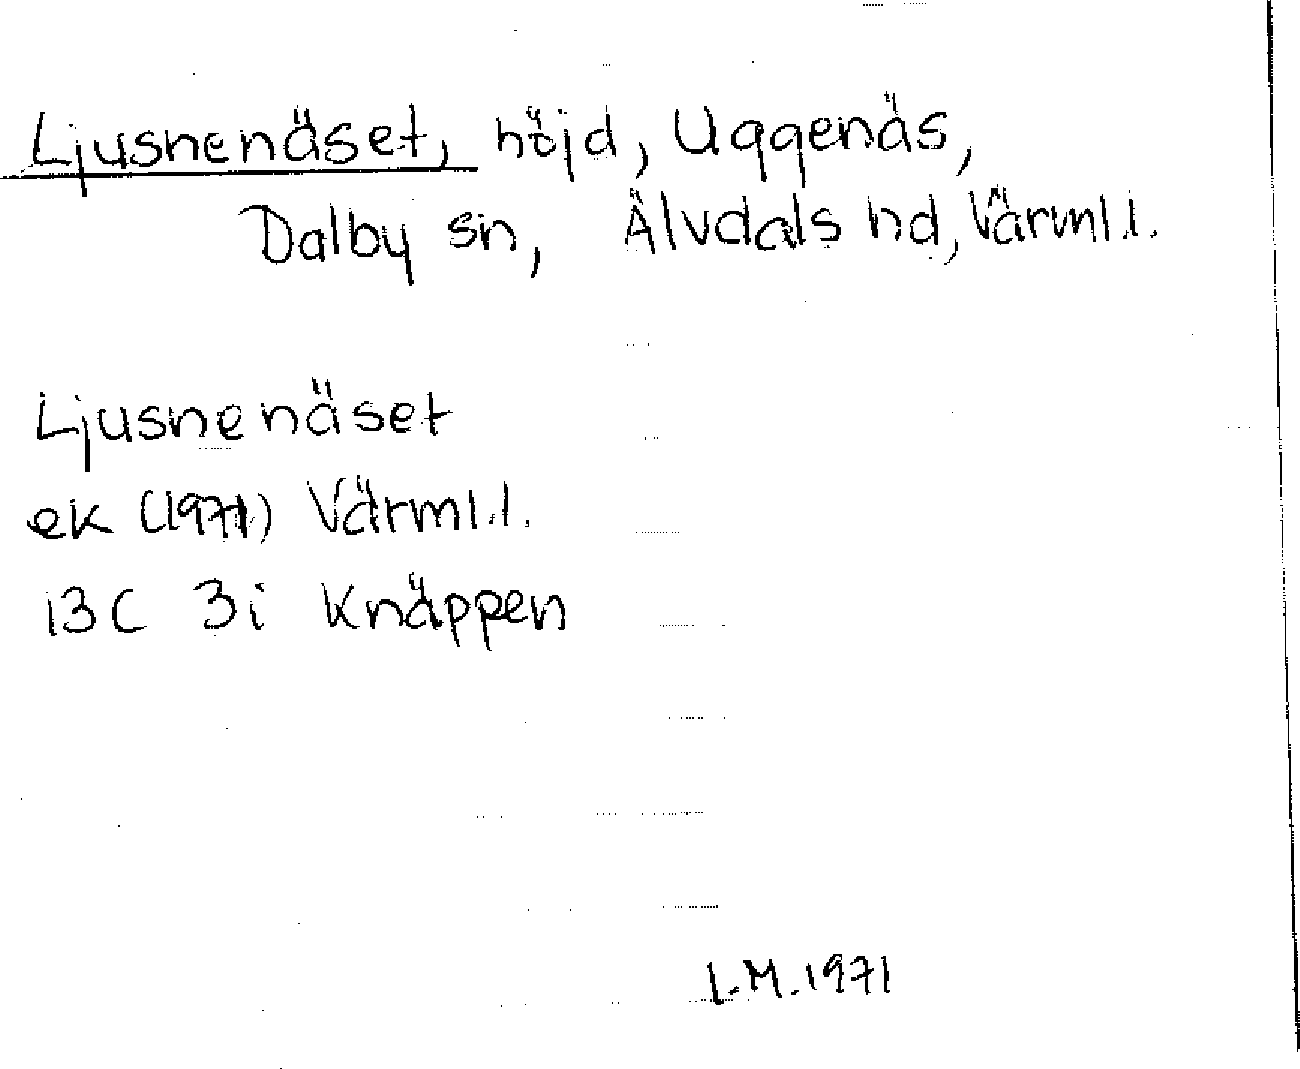 Ljusnenäset, höjd, Uggenäs,
Dalby sn, Älvdals hd, Värml.l.
Ljusnenäset
ek (1971) Värml.l.
13C 3i Knäppen
L.M. 1971